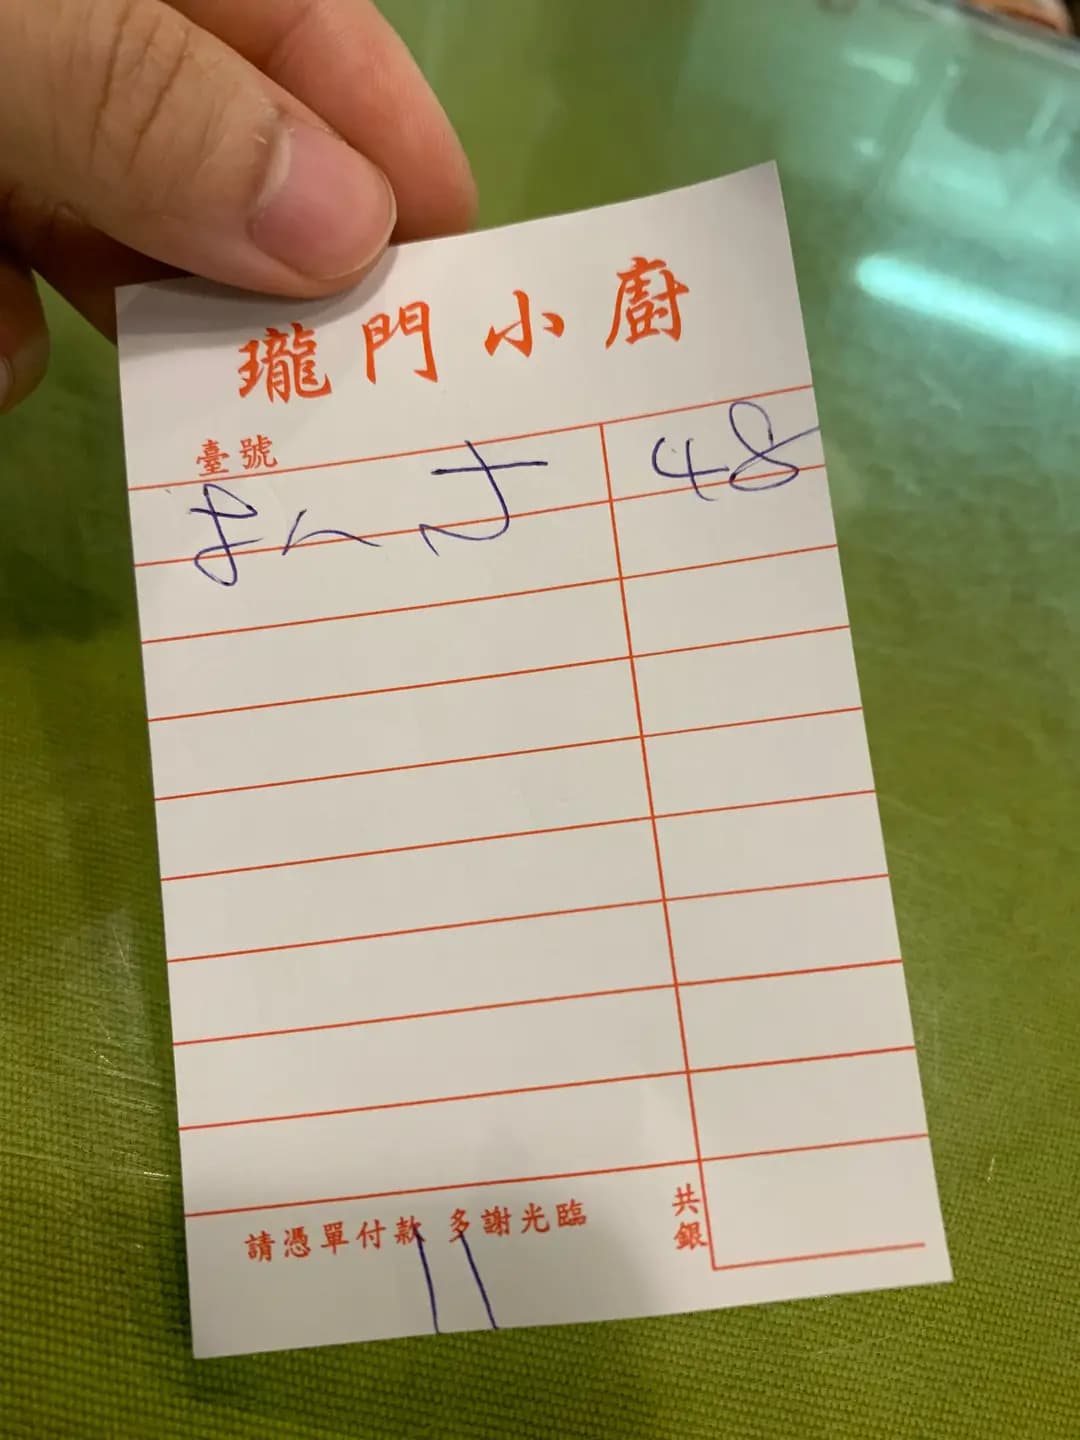 瓏門小廚
臺號
48
請憑單付款 多謝光臨
共銀
11